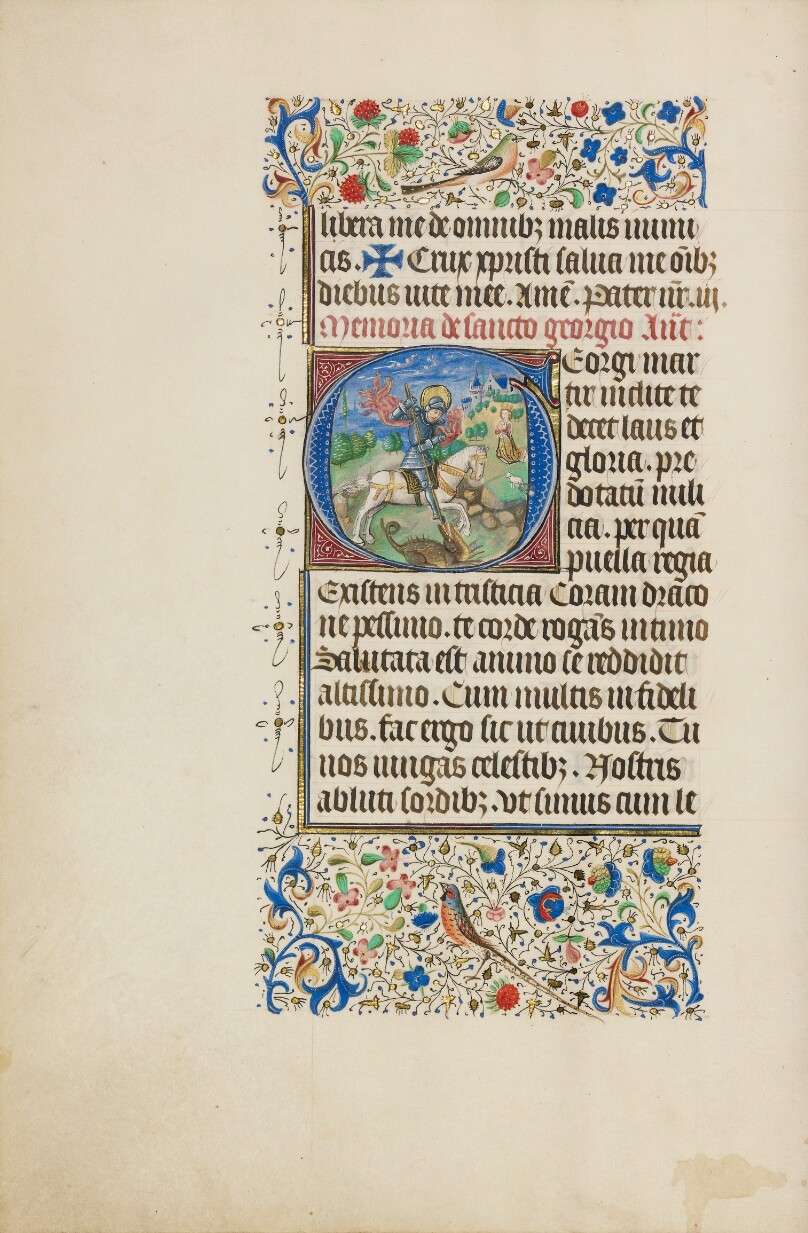 libera me de omnibꝫ malis inimi
cis. ✠ Crux xpristi salua me oībꝫ
diebus uite mee. Amē. Pater nr̄. iij.
Memoria de sancto georgio Añt:
GEorgi mar
tir inclite te
decet laus et
gloria. pre
dotatū mili
cia. per quā
puella regia
Existens in tristicia Coram draco
ne pessimo. te corde rogās intimo
Saluata est animo se reddidit
altissimo. Cum multis infideli
bus. fac ergo sic ut ciuibus. Tu
nos iungas celestibꝫ. Nostris
abluti sordibꝫ. vt simus cum le